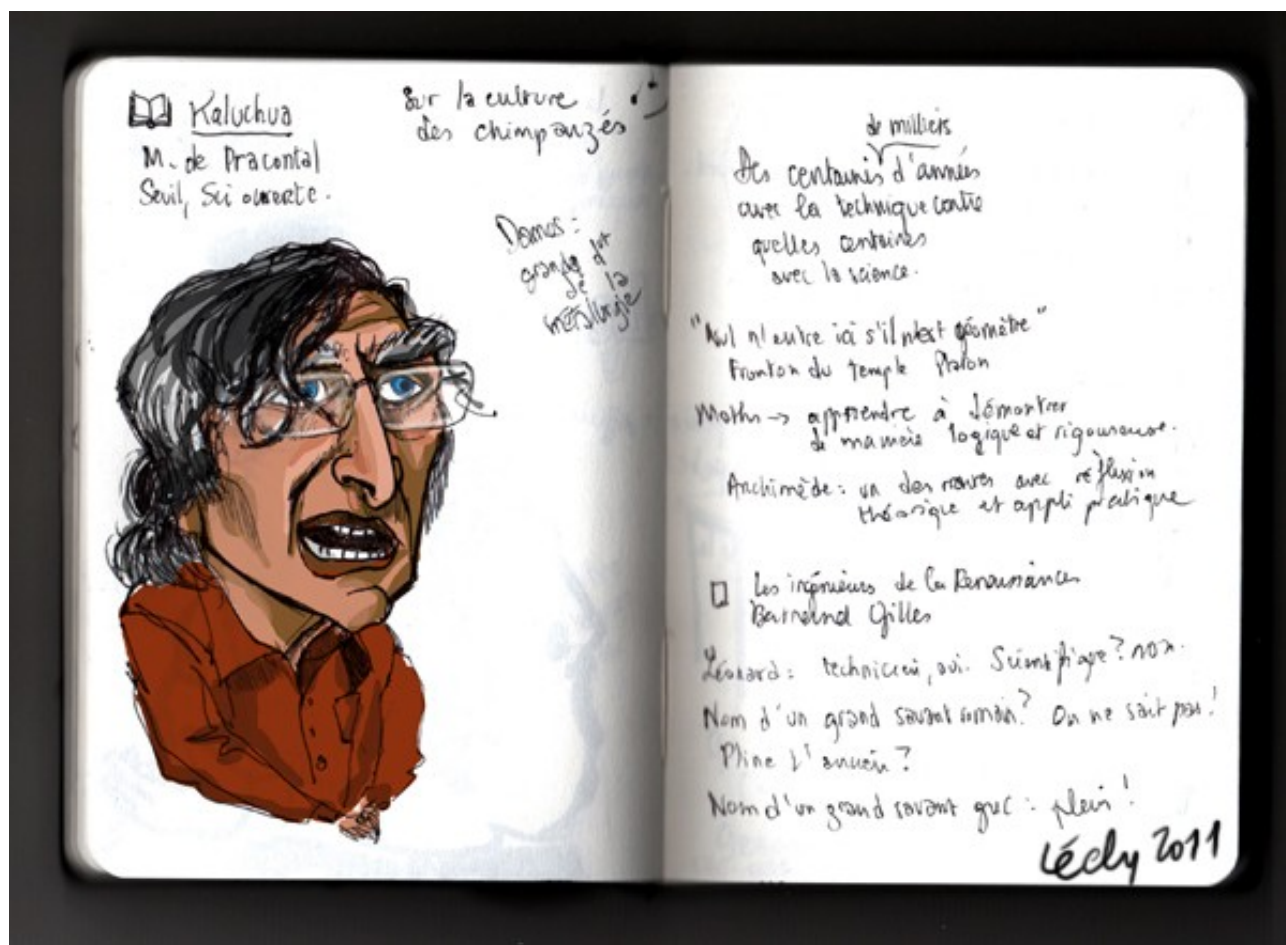 Kaluchua
M. de Pracontal
Seuil, Sci ouverte.
Sur la culture
des chimpanzés
grande
de la
métallurgie
de milliers
Des centaines d'années
avec la technique contre
quelles centaines
avec la science.
"Nul n'entre ici s'il n'est géomètre"
Fronton du temple Platon
Maths → apprendre à démontrer
de manière logique et rigoureuse.
Archimède : un des rares avec réflexion
théorique et appli pratique
Les ingénieurs de la Renaissance
Bertrand Gilles
Léonard : technicien, oui. Scientifique ? non.
Nom d'un grand savant romain ? On ne sait pas !
Pline l'ancien ?
Nom d'un grand savant grec : plein !
Lécly 2011